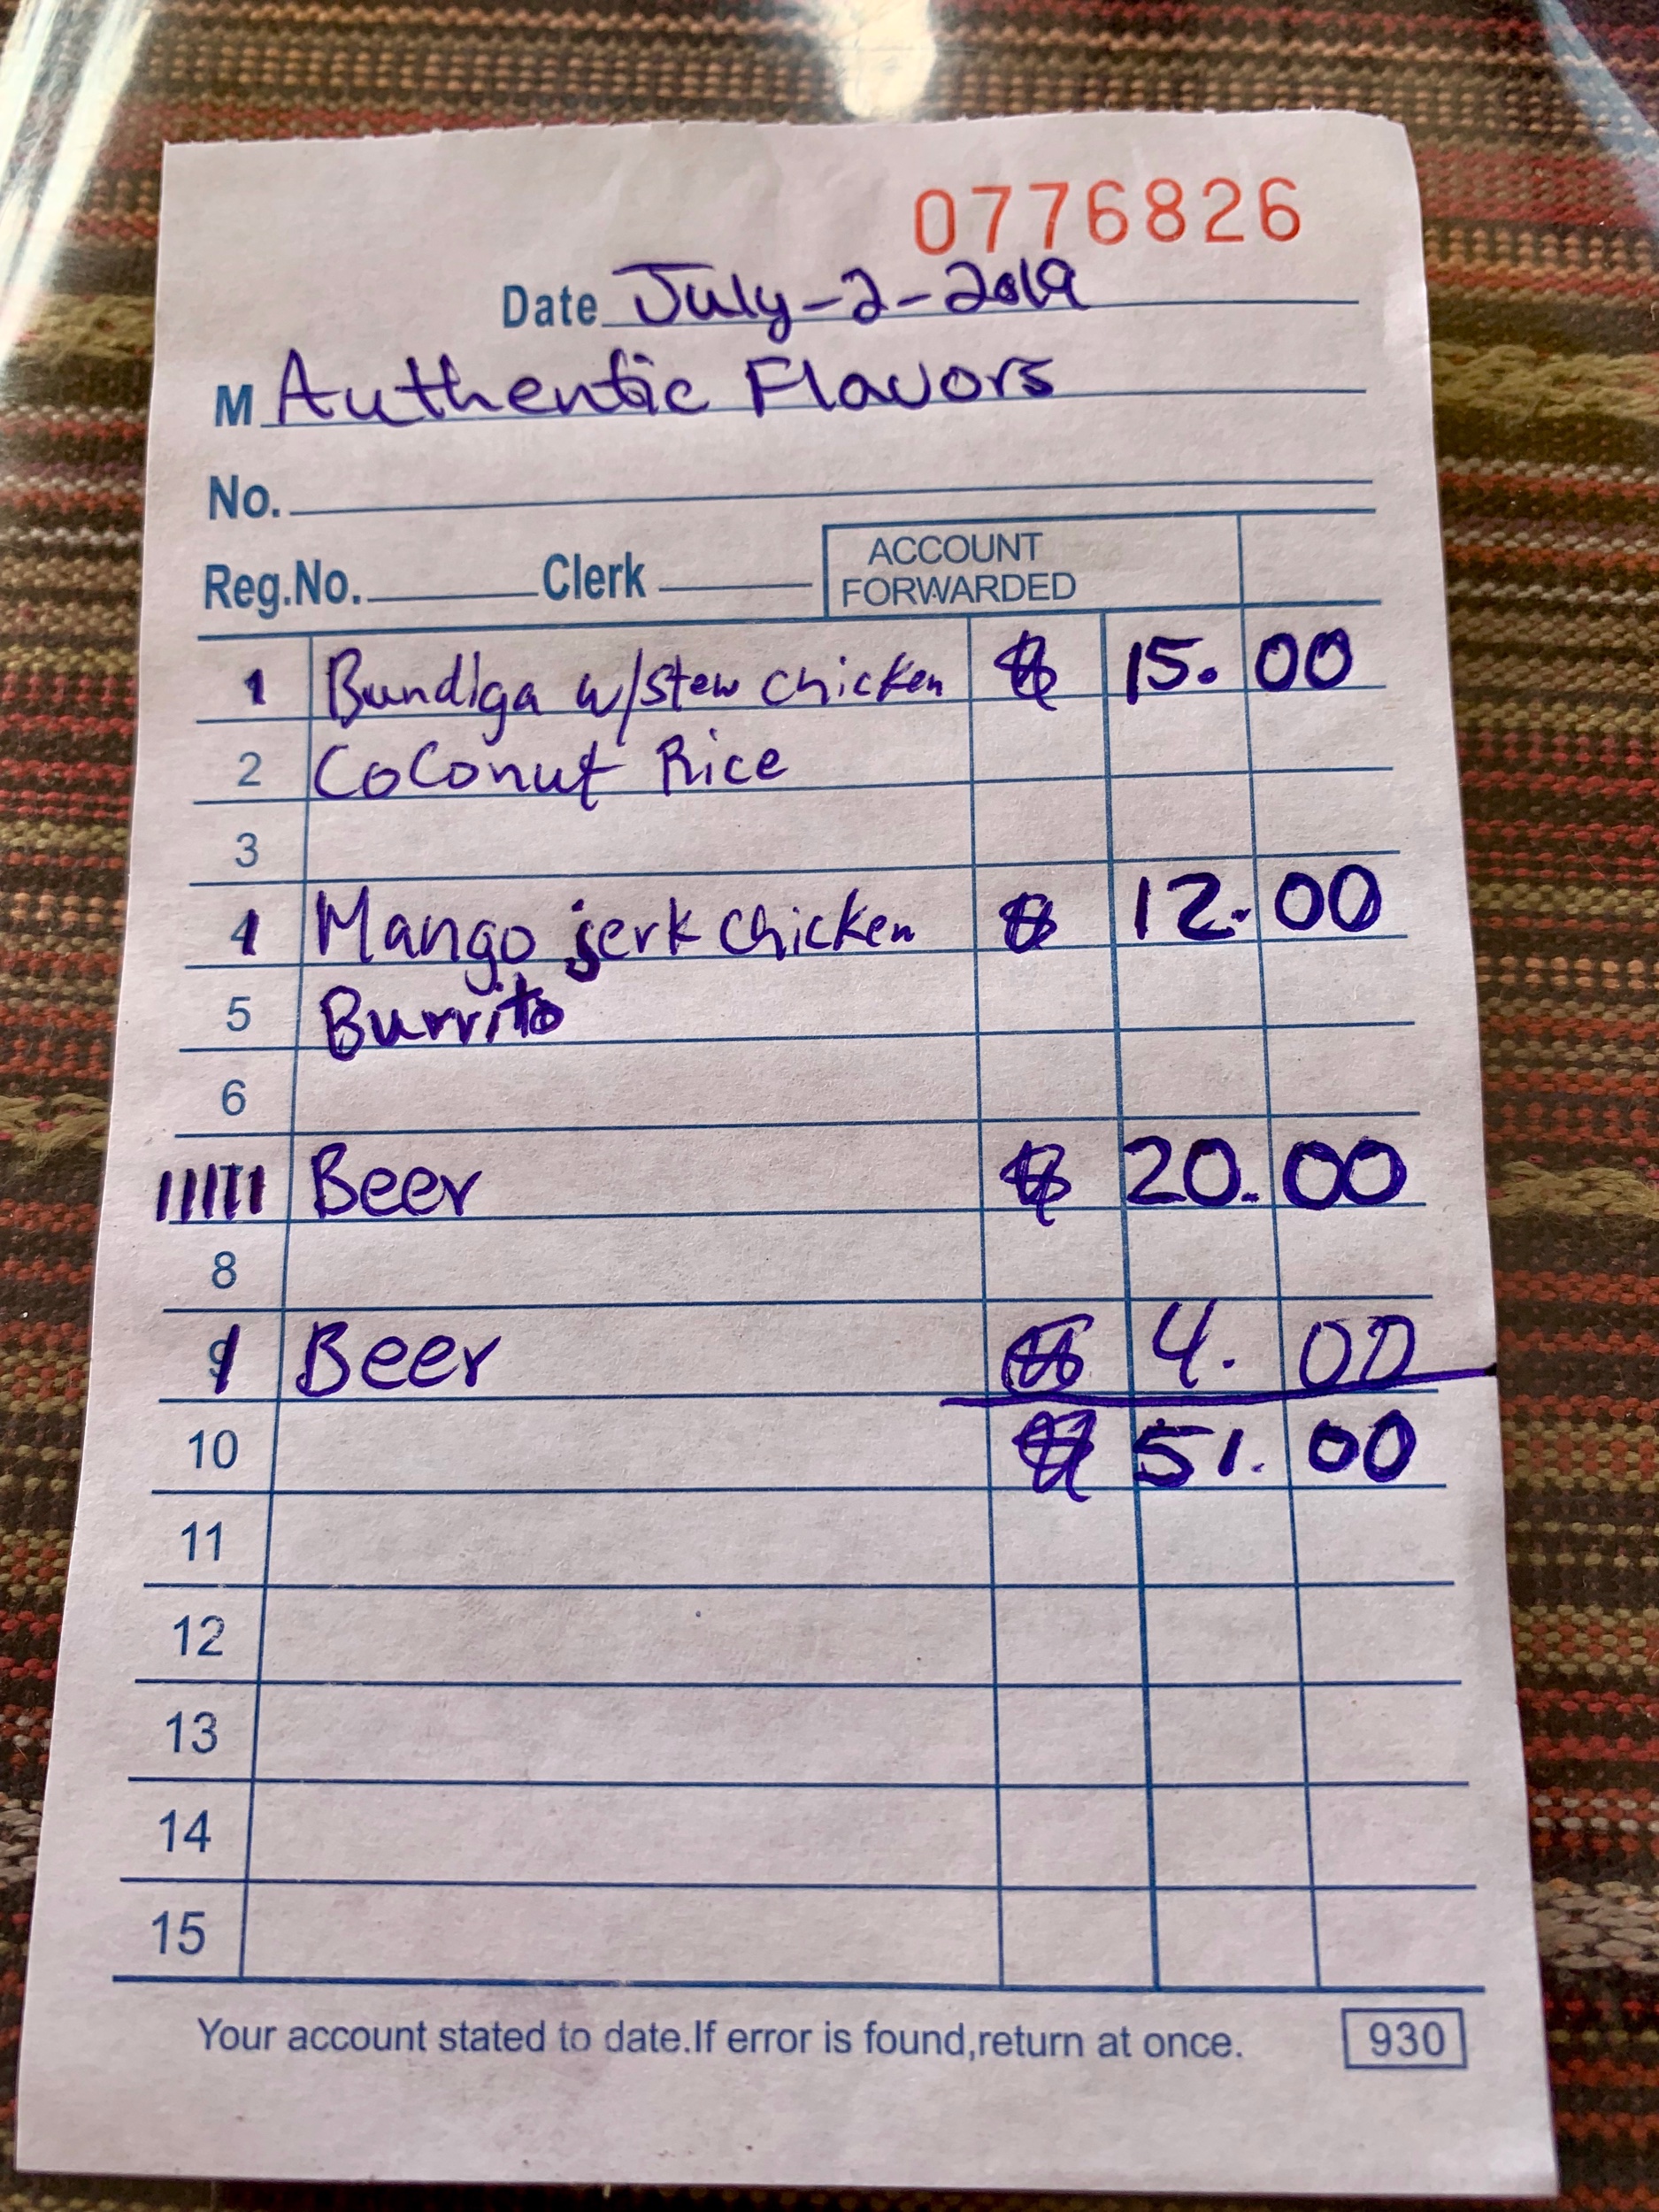 0776826
Date July-2-2019
M Authentic Flavors
No.
Reg.No. Clerk ACCOUNT FORWARDED
1 Bundiga w/stew chicken $ 15.00
2 Coconut Rice
3
1 Mango jerk chicken $ 12.00
5 Burrito
6
Beer $ 20.00
8
1 Beer $ 4.00
10 $ 51.00
11
12
13
14
15
Your account stated to date.If error is found,return at once. 930